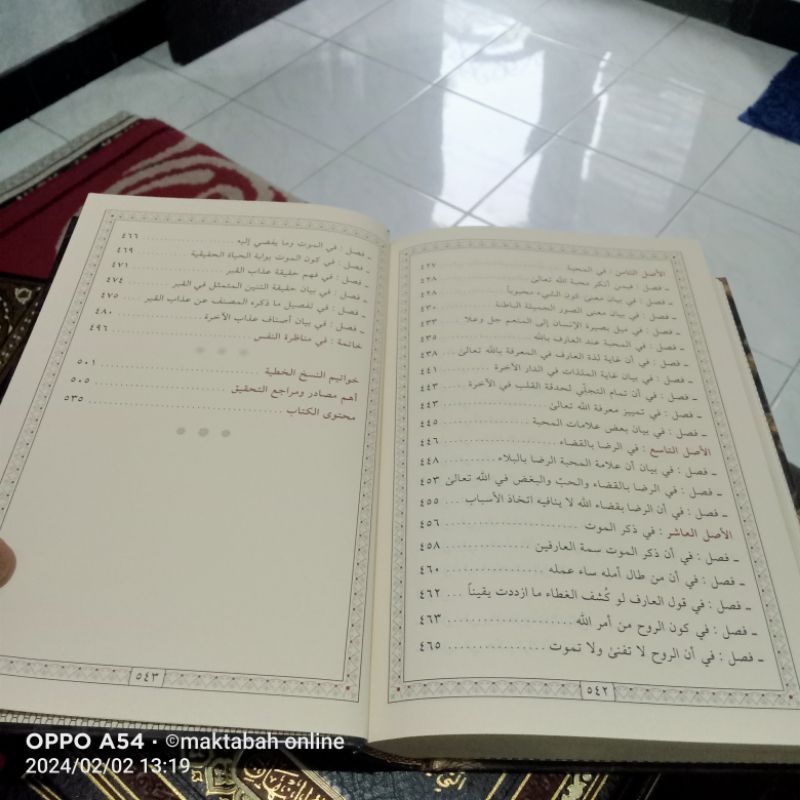 الأصل الثامن : في المحبة ٤٢٧
ـ فصل : فيمن أنكر محبة الله تعالى ٤٢٨
ـ فصل : في بيان معنى كون الشيء محبوباً ٤٢٨
ـ فصل : في بيان معنى الصور الجميلة الباطنة ٤٣٠
ـ فصل : في ميل بصيرة الإنسان إلى المنعم جل وعلا ٤٣٣
ـ فصل : في المحبة عند العارف بالله ٤٣٥
ـ فصل : في أن غاية لذة العارف في المعرفة بالله تعالى ٤٣٨
ـ فصل : في بيان غاية الملذات في الدار الآخرة ٤٤١
ـ فصل : في أن تمام التجلّي لحدقة القلب في الآخرة ٤٤٣
ـ فصل : في تمييز معرفة الله تعالى ٤٤٣
ـ فصل : في بيان بعض علامات المحبة ٤٤٥
الأصل التاسع : في الرضا بالقضاء ٤٤٦
ـ فصل : في بيان أن علامة المحبة الرضا بالبلاء ٤٤٨
ـ فصل : في الرضا بالقضاء والحبّ والبغض في الله تعالى ٤٥٣
ـ فصل : في أن الرضا بقضاء الله لا ينافيه اتخاذ الأسباب ٤٥٥
الأصل العاشر : في ذكر الموت ٤٥٦
ـ فصل : في أن ذكر الموت سمة العارفين ٤٥٨
ـ فصل : في أن من طال أمله ساء عمله ٤٦٠
ـ فصل : في قول العارف لو كُشف الغطاء ما ازددت يقيناً ٤٦٢
ـ فصل : في كون الروح من أمر الله ٤٦٣
ـ فصل : في أن الروح لا تفنى ولا تموت ٤٦٥
٥٤٢
ـ فصل : في الموت وما يفضي إليه ٤٦٦
ـ فصل : في كون الموت بوابة الحياة الحقيقية ٤٦٩
ـ فصل : في فهم حقيقة عذاب القبر ٤٧١
ـ فصل : في بيان حقيقة التنين المتمثل في القبر ٤٧٤
ـ فصل : في تفصيل ما ذكره المصنف عن عذاب القبر ٤٧٥
ـ فصل : في بيان أصناف عذاب الآخرة ٤٨٠
خاتمة : في مناظرة النفس ٤٩٦
خواتيم النسخ الخطية ٥٠١
أهم مصادر ومراجع التحقيق ٥٠٥
محتوى الكتاب ٥٣٥
٥٤٣
OPPO A54 · ©maktabah online
2024/02/02 13:19